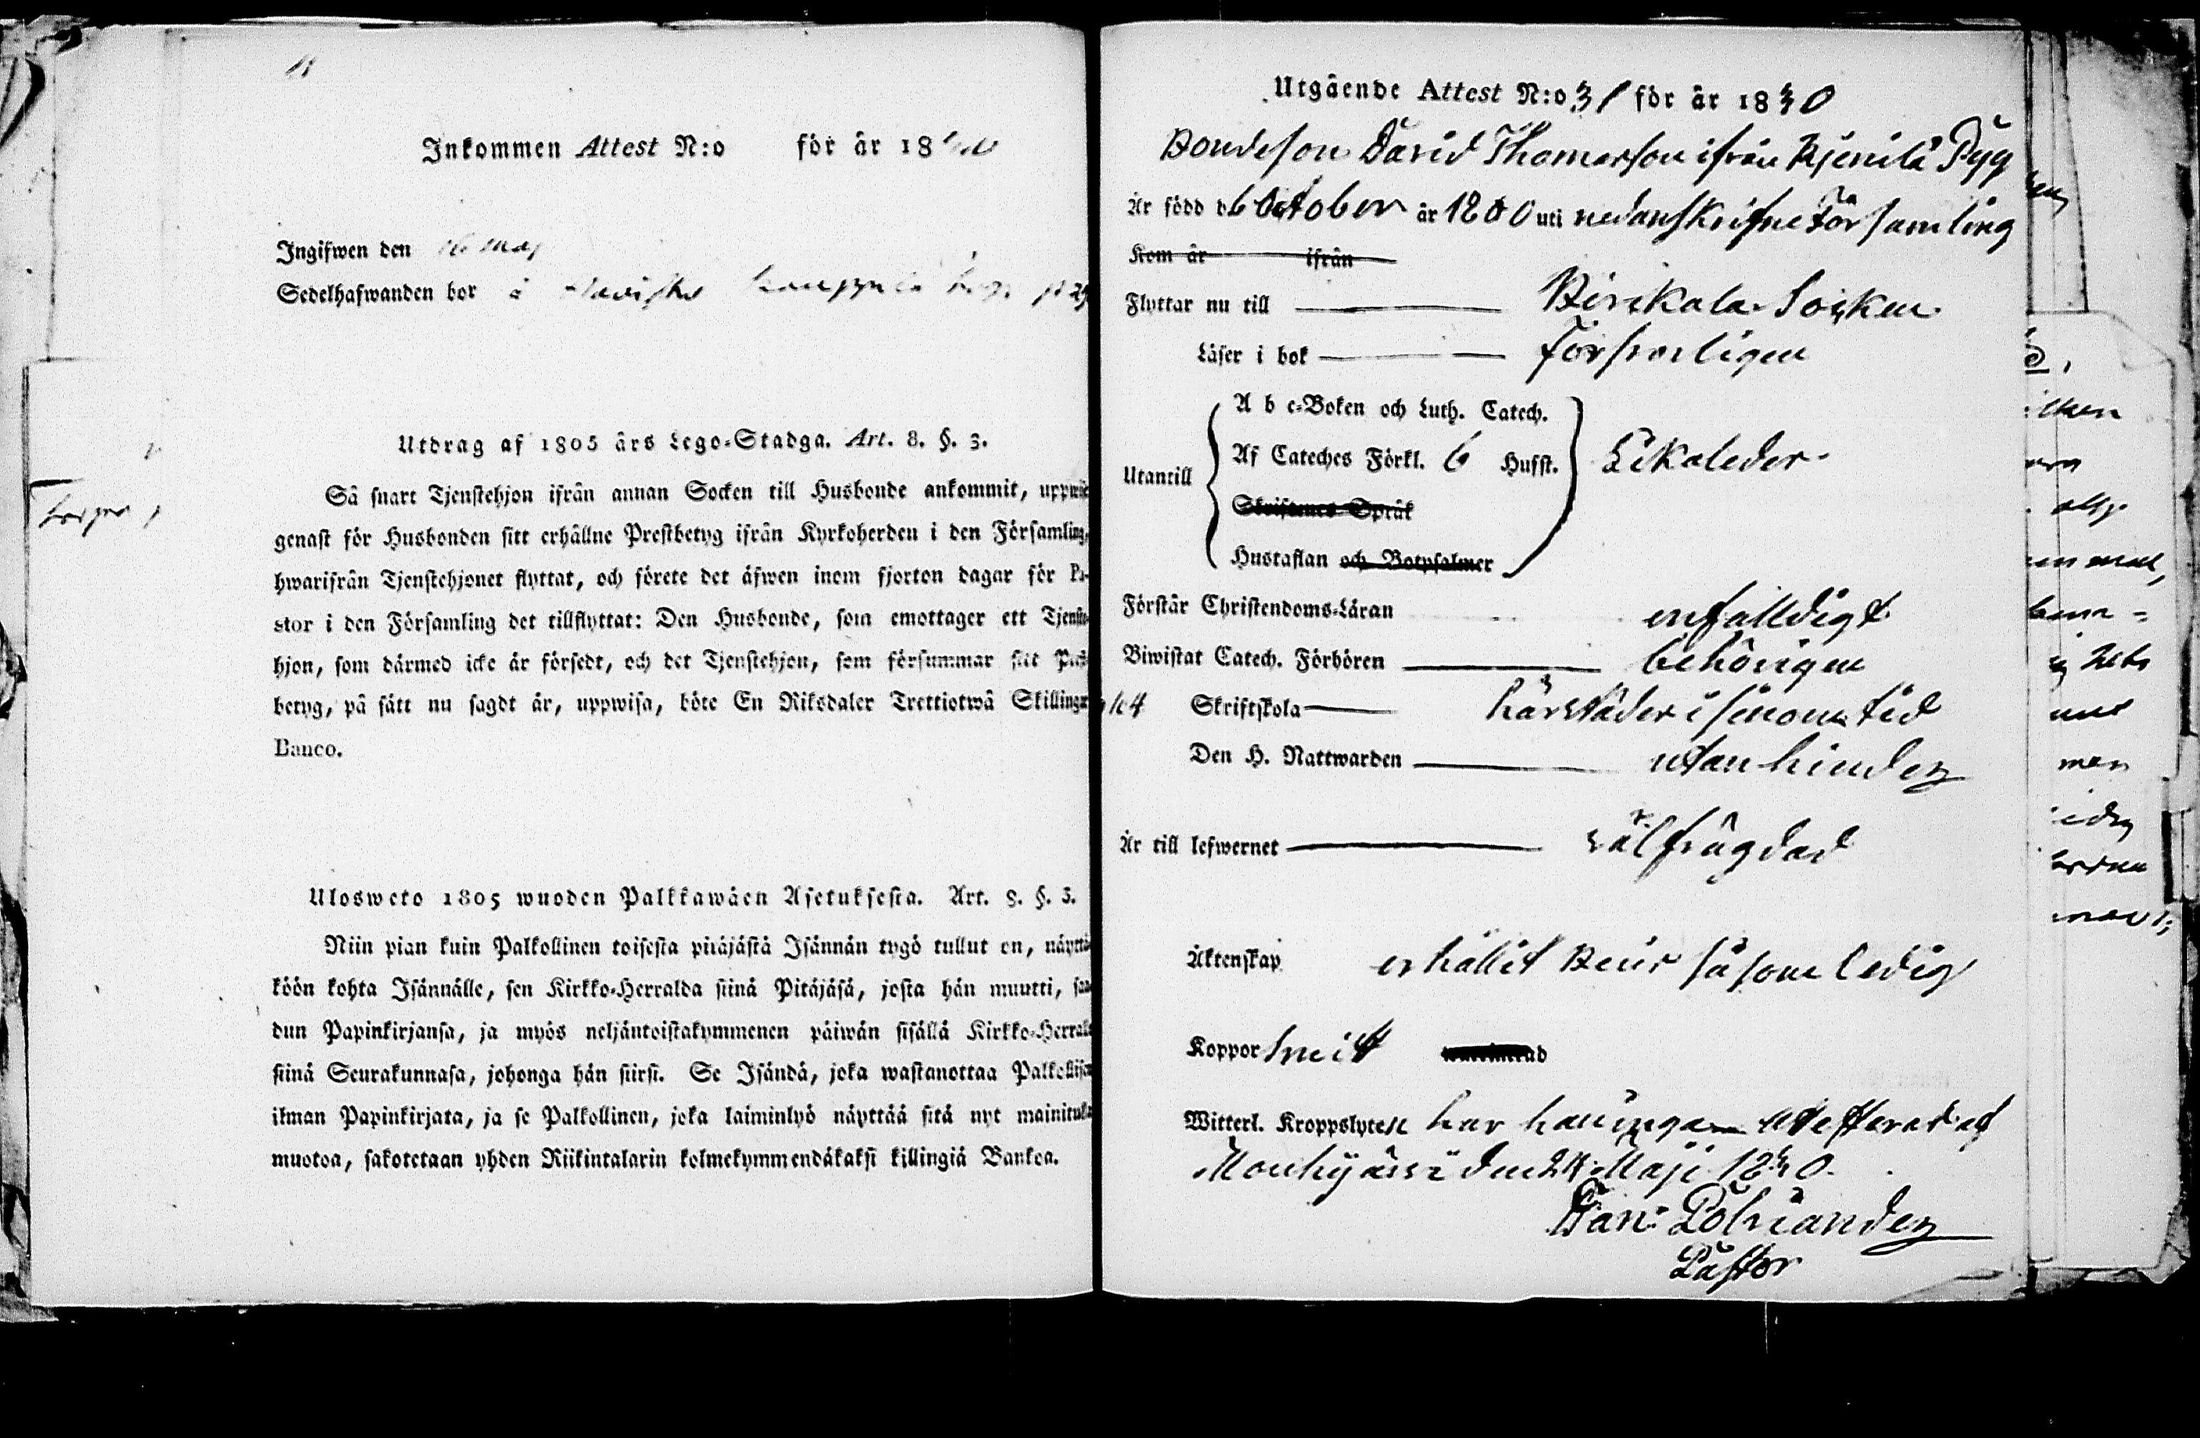 Inkommen Attest N:o för år 18
Ingifwen den 16 Maj
Sedelhafwanden bor å
Utdrag af 1805 års Lego-Stadga. Art. 8. §. 3.
Så snart Tjenstehjon ifrån annan Socken till Husbonde ankommit, uppwise
genast för Husbonden sitt erhållne Prestbetyg ifrån Kyrkoherden i den Församling,
hwarifrån Tjenstehjonet flyttat, och förete det äfwen inom fjorton dagar för Pa-
stor i den Församling det tillflyttat: Den Husbonde, som emottager ett Tjenste-
hjon, som därmed icke är försedt, och det Tjenstehjon, som försummar sitt Prest-
betyg, på sätt nu sagdt är, uppwisa, böte En Riksdaler Trettiotwå Skillingar
Banco.
Ulosweto 1805 wuoden Palkkawäen Asetuksesta. Art. 8. §. 3.
Niin pian kuin Palkollinen toisesta pitäjästä Isännän tygö tullut on, näyttä-
köön kohta Isännälle, sen Kirkko-Herralda siinä Pitäjäsä, josta hän muutti, saa-
dun Papinkirjansa, ja myös neljäntoistakymmenen päiwän sisällä Kirkko-Herralle
siinä Seurakunnasa, johonga hän siirsi. Se Isändä, joka wastanottaa Palkollisen
ilman Papinkirjata, ja se Palkollinen, joka laiminlyö näyttää sitä nyt mainitulla
muotoa, sakotetaan yhden Riikintalarin kolmekymmendäkaksi killingiä Bankoa.
Utgående Attest N:o 31 för år 1830
Bondeson David Thomasson ifrån
Är född d. 6 October år 1800 uti nedanskrifne Församling
Kom år ifrån
Flyttar nu till Birkala Socken
Läser i bok försvarligen
A b c-Boken och Luth. Catech.
Utantill Af Cateches Förkl. 6 Husst. Likaleder
Skriftenes Språk
Hustaflan och Botpsalmer
Förstår Christendoms-Läran enfalldigt
Biwistat Catech. Förhören behörigen
Skriftskola härstädes i sinom tid
Den H. Nattwarden utan hinder
Är till lefwernet välfrägdad
Äktenskap erhållit såsom ledig
Koppor haft
Witterl. Kroppslyten har han inga Attesterad af
Mouhijärvi den 24 Maji 1830.
Pastor